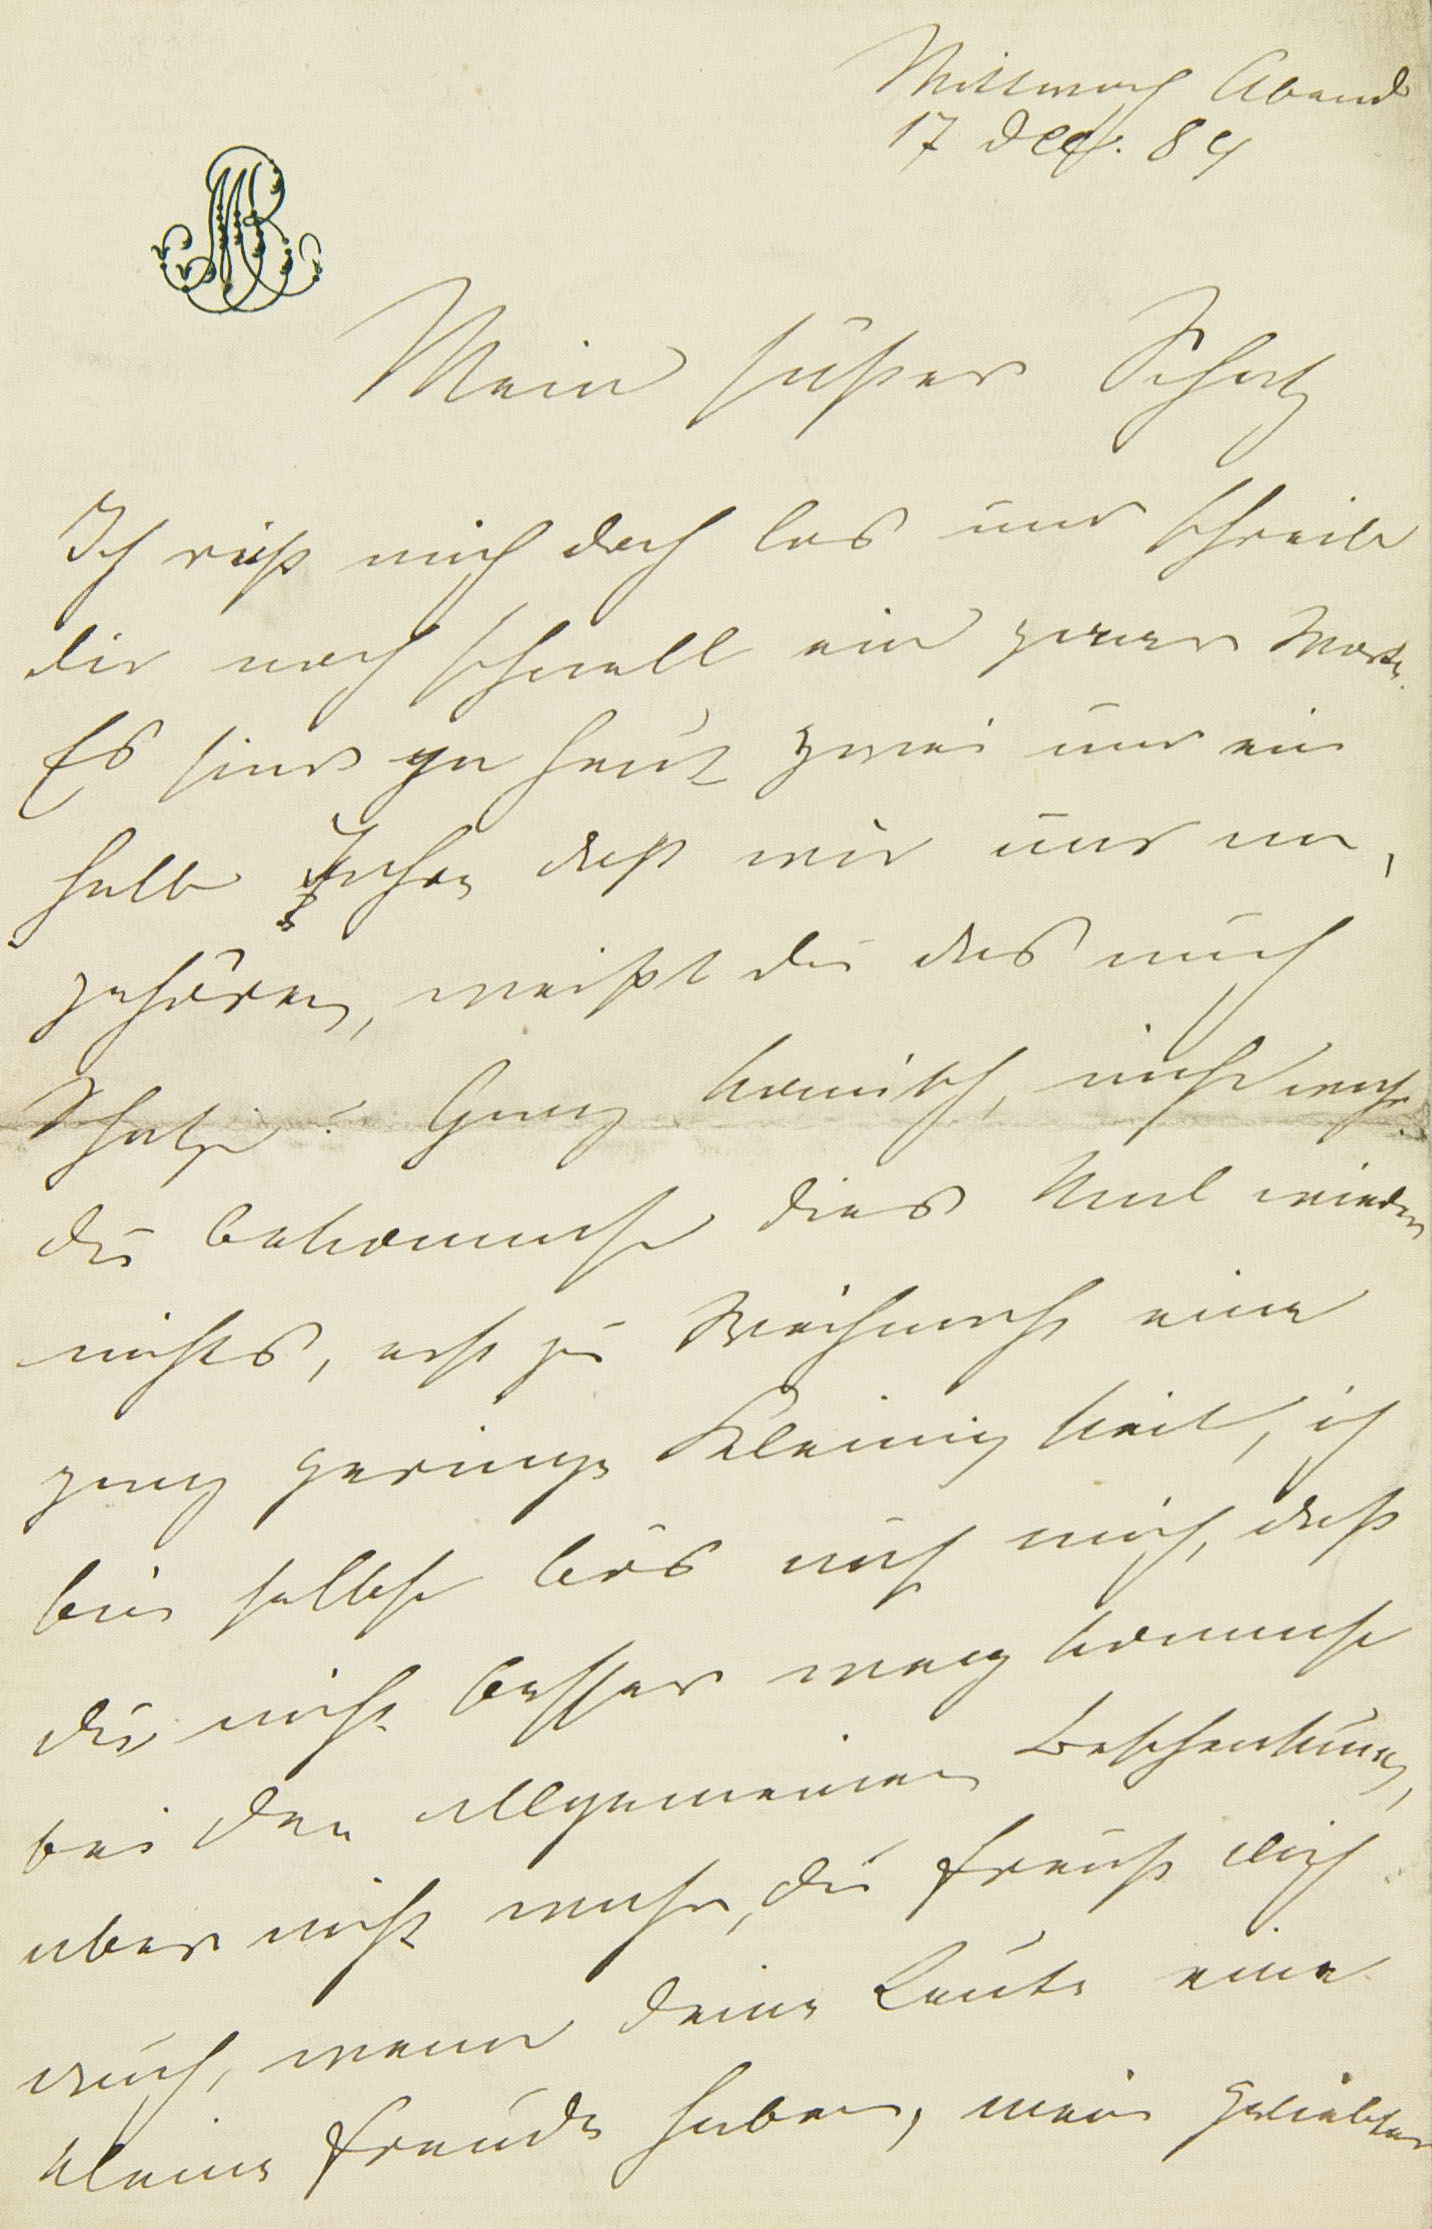 Mittwoch Abend
17 Dez. 84
MB
Mein süßer Schatz
Ich reiß mich doch los und schreib
dir noch schnell ein paar Worte.
Es sind ja heut zwei und ein
halb Jahre daß wir uns an¬
gehören, weißt du das auch
Schatz? Ganz komisch, nicht wahr
du bekommst dies Mal wieder
nichts, erst zu Weihnacht eine
ganz geringe Kleinigkeit, ich
bin selbst bös auf mich, daß
du nicht besser weg kommst
bei der allgemeinen Beschenkung,
aber nicht wahr, du freust dich
auch, wenn deine Leute eine
kleine Freude haben, mein geliebter